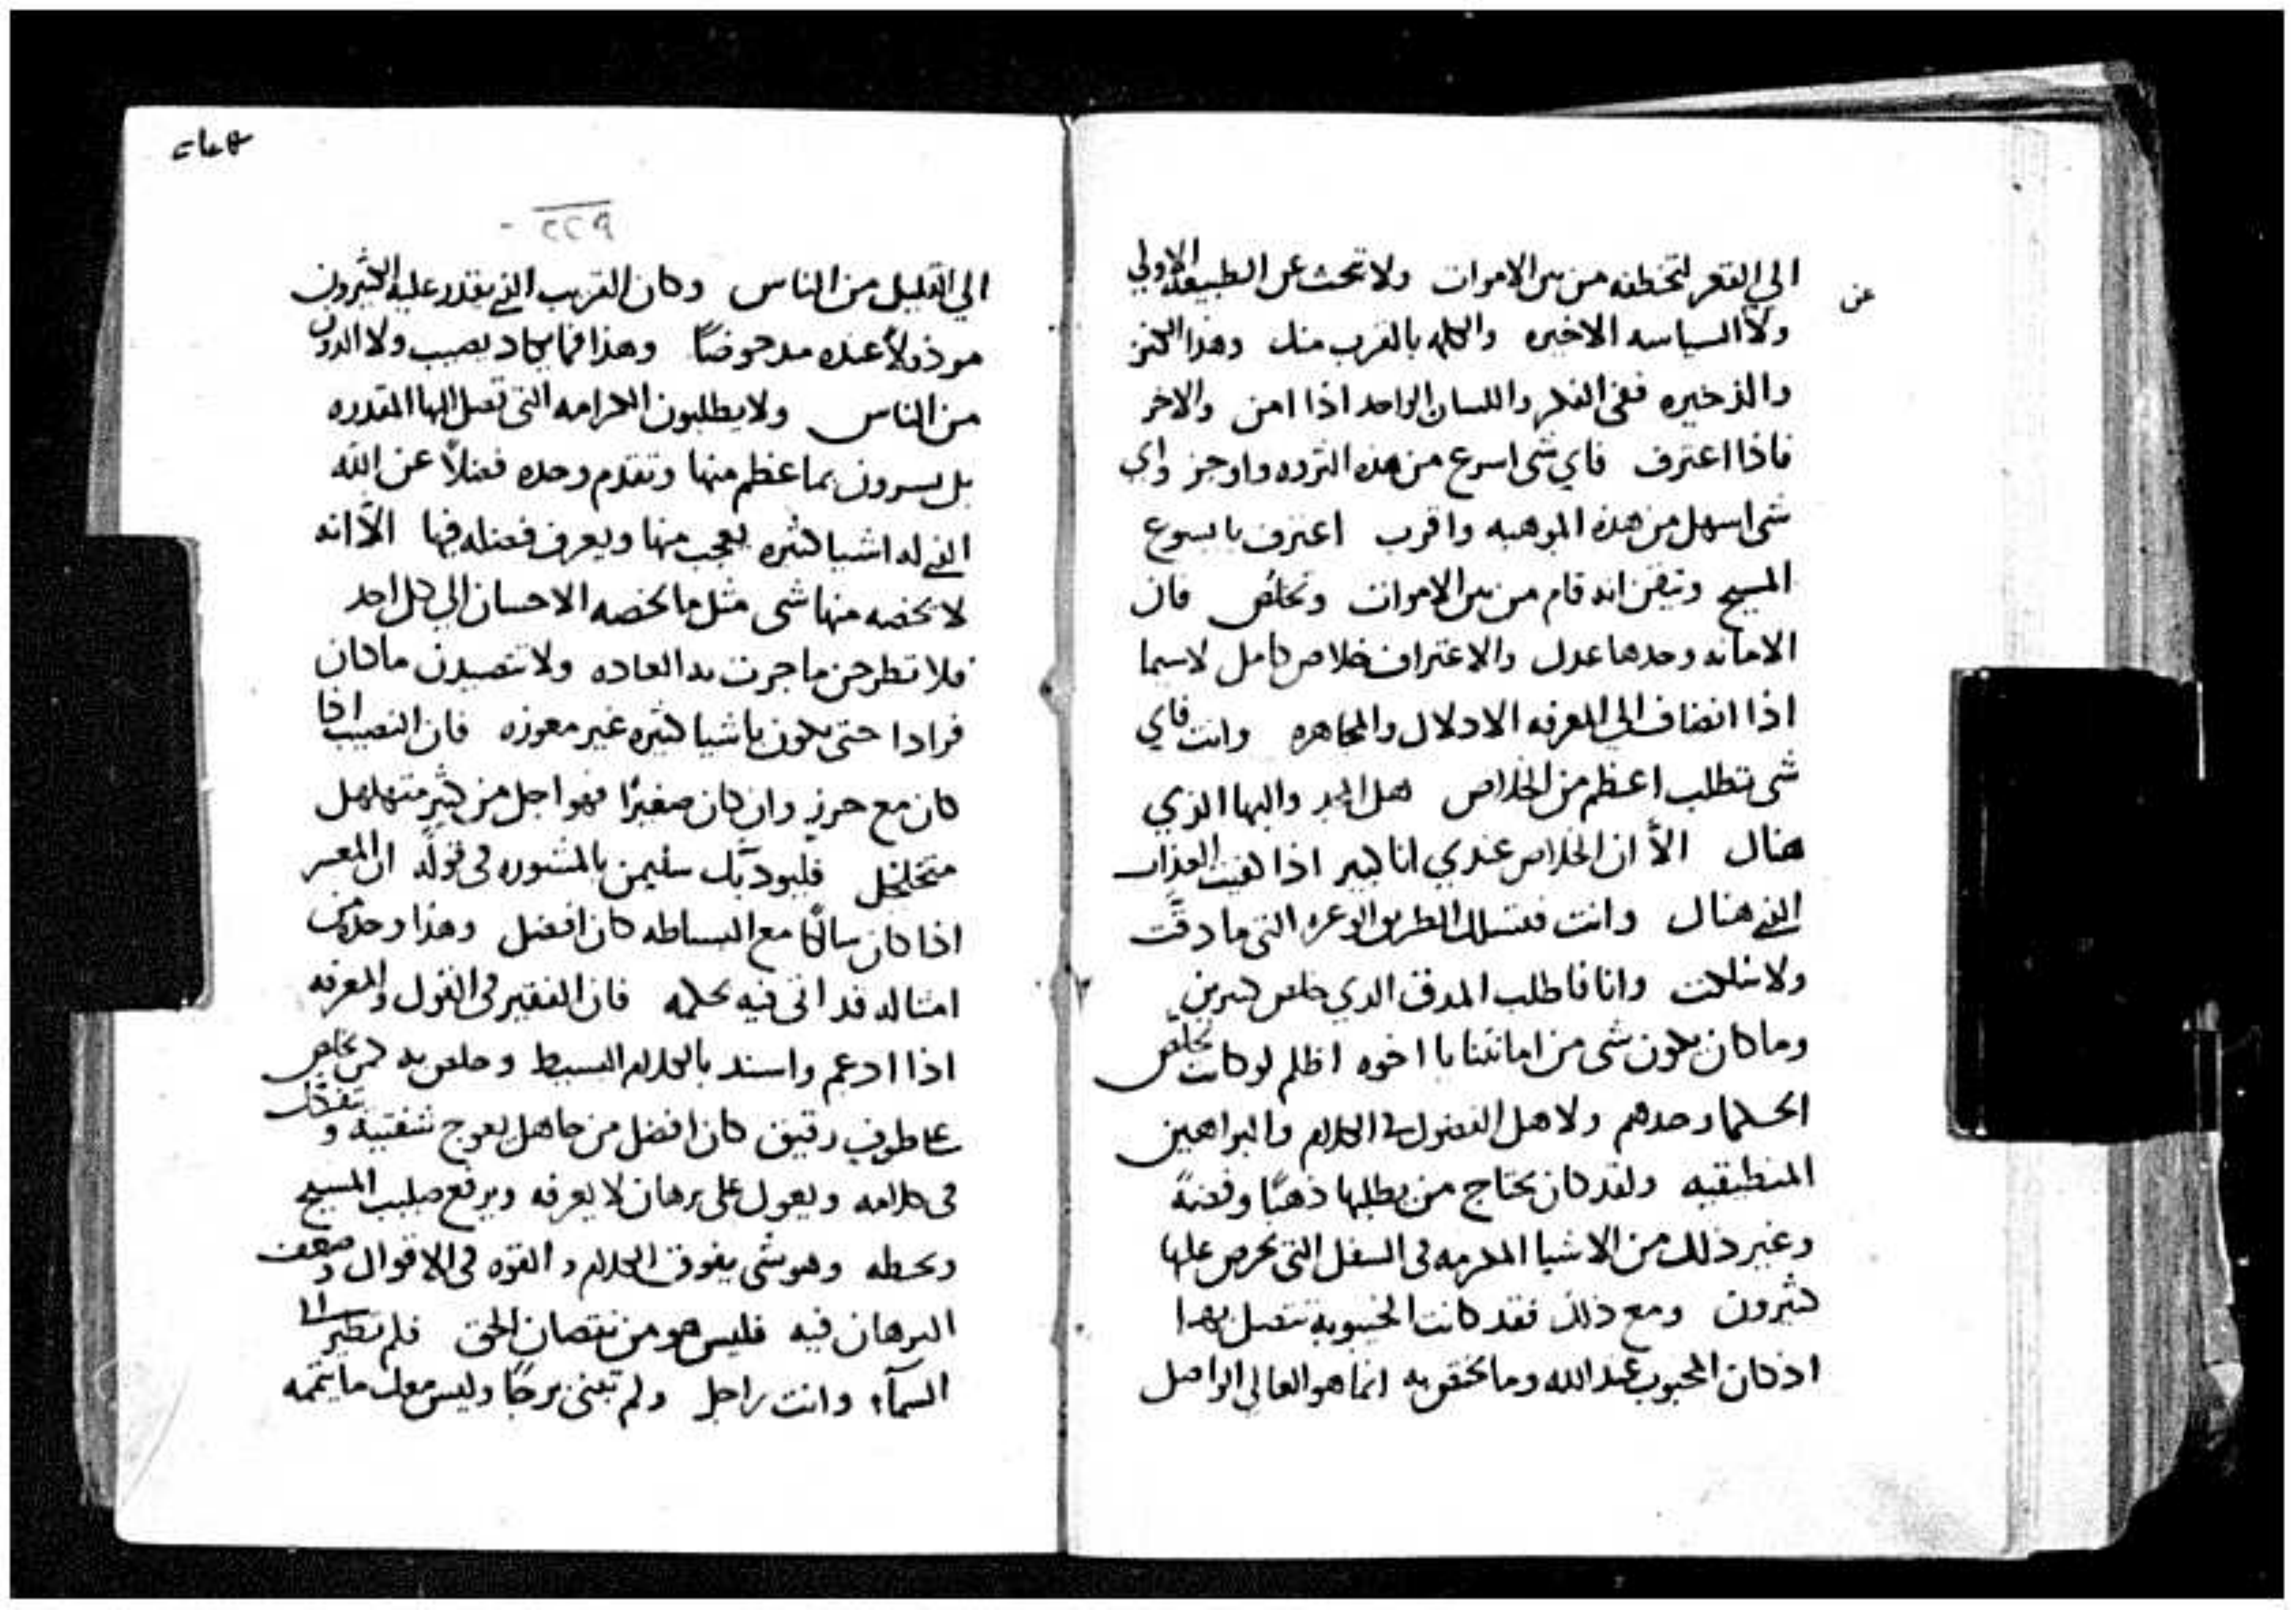 الي القعر لتخطفه من بين الاموات ولا تبحث عن الطبيعه الاولي
عن
ولا السياسه الاخيره والكلمه بالقرب منك وهذا الكنز
والذخيره ففي الفكر واللسان الواحد اذا امن والاخر
فاذا اعترف فاي شي اسرع من هذه الثروه واوجز واي
شي اسهل من هذه الموهبه واقرب اعترف بايسوع
المسيح وتيقن انه قام من بين الاموات وتخلص فان
الامانه وحدها عدل والاعتراف خلاص كامل لاسيما
اذا انضاف الي المعرفه الادلال والمجاهره وانت فاي
شي تطلب اعظم من الخلاص هل المجد والبها الذي
هناك الا ان الخلاص عندي انا كبير اذا كفيت العذاب
الذي هناك وانت فتسلك الطريق الوعره التي ما دقت
ولا سلكت وانا فاطلب المدقق الذي خلص كثيرين
وما كان يكون شي من امانتنا يا اخوه اظلم لو كانت تخلص
الحكما وحدهم ولاهل الفضول في الكلام والبراهين
المنطقيه ولقد كان يحتاج من يطلبها ذهبًا وفضةً
وغير ذلك من الاشيا المكرمه في السفل التي يحرص عليها
كثيرون ومع ذلك فقد كانت تتصل بهذا
اذ كان المحبوب عند الله وما يختص به انما هو العالي الواصل
٢٢٩
الي القليل من الناس وكان القريب الذي يقدر عليه الكثيرون
مرذولاً عنده مدحوضًا وهذا فما يكاد يصيب ولا الدون
من الناس ولا يطلبون الكرامه التي تصل اليها المقدره
بل يسرون بما عظم منها وتقدم وحده فضلاً عن الله
الذي له اشيا كثيره يعجب منها ويعرف فضله فيها الاّ انه
لا يخصه منها شي مثل ما يخصه الاحسان الي كل احد
فلا تطرحن ما جرت به العاده ولا تتصيدن ما كان
فرادا حتى يكون باشيا كثيره غير معوزه فان النصيب اذا
كان مع حرز وان كان صغيرًا فهو اجل من كثير متهلهل
متخلخل فليودبك سليمن بالمشوره في قوله ان المعسر
اذا كان سالكًا مع البساطه كان افضل وهذا وحده من
امثاله قد اتى فيه بحكمه فان الفقير في القول والمعرفه
اذا ادعم واسند بالكلام البسيط وخلص به كمن يخلص
على طوف رقيق كان افضل من جاهل يعوج شفتيه و
في كلامه ويعول على برهان لا يعرفه ويرفع صليب المسيح
ويحطه وهو شي يفوق الكلام والقوه في الاقوال وضعف
البرهان فيه فليس هو من نقصان الحق فلم تطير الى
السمآء وانت راجل ولم تبنى برجًا وليس معك ما يتممه